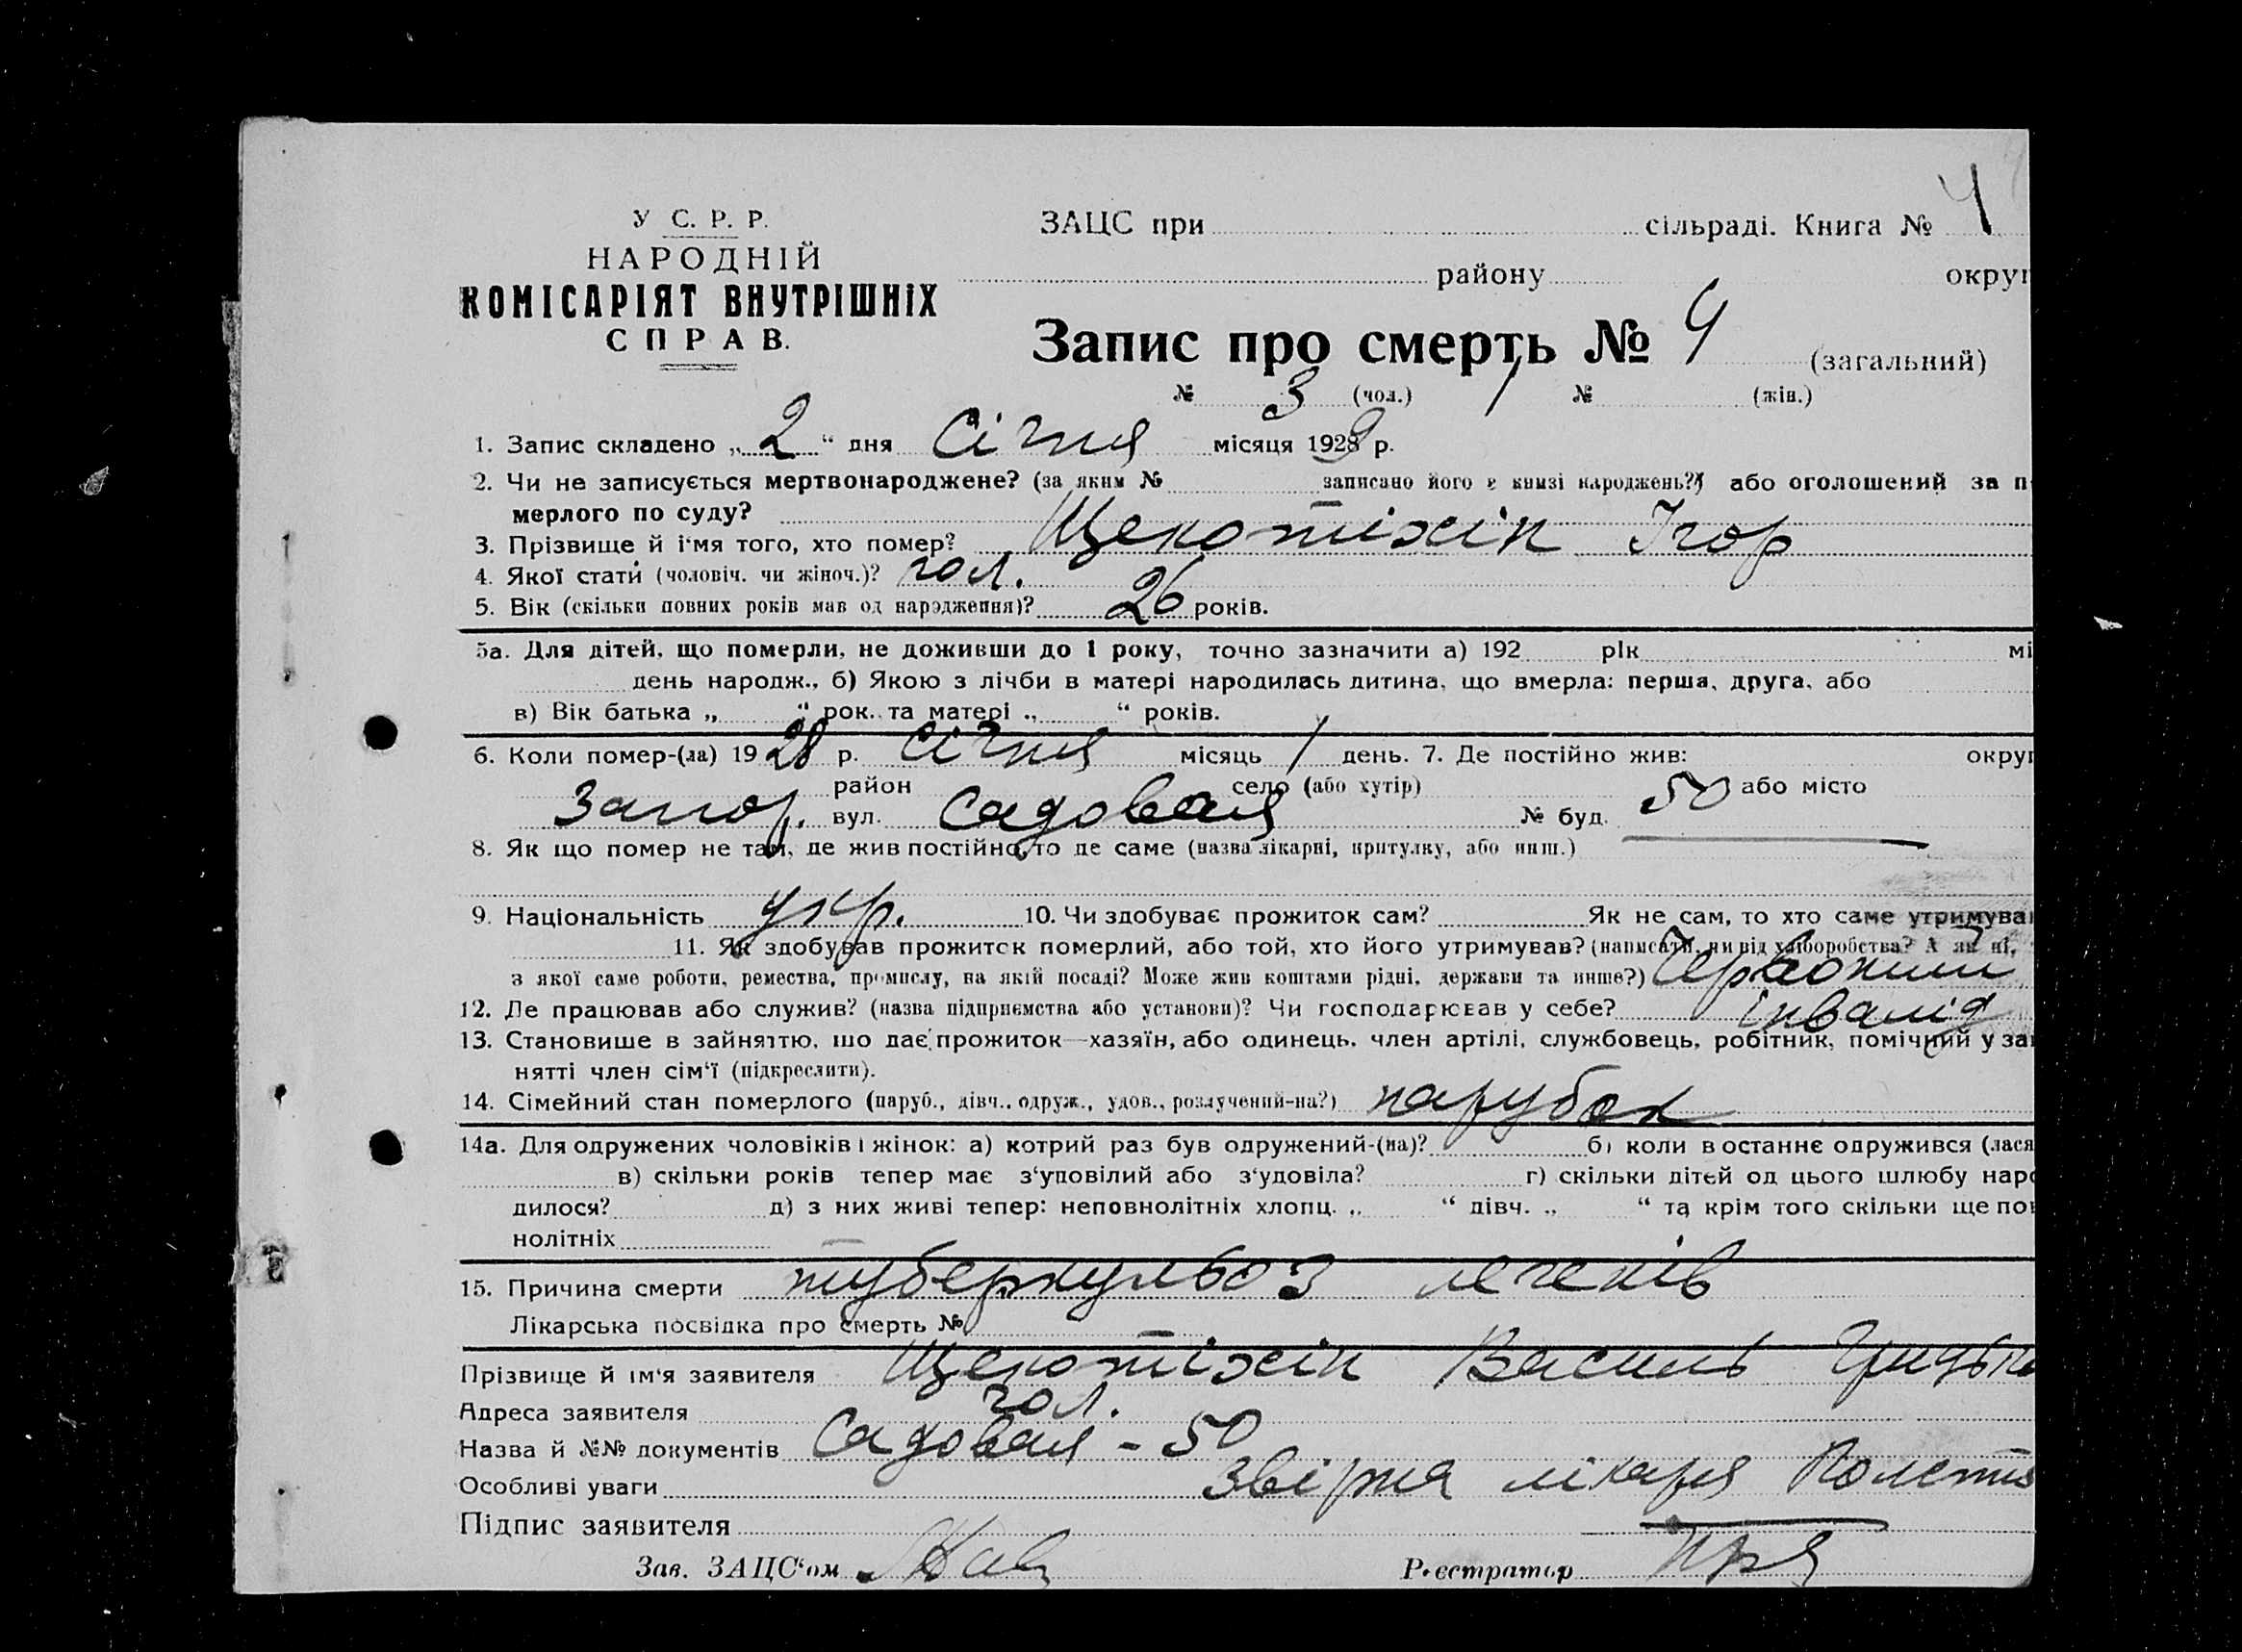 У С. Р. Р.
НАРОДНІЙ
КОМІСАРІЯТ ВНУТРІШНІХ
СПРАВ.
ЗАЦС при сільраді. Книга №
району округ
Запис про смерть № 4 (загальний)
№ 3 (чол.) № (жін.)
1. Запис складено „ 2 “ дня Січня місяця 1929 р.
2. Чи не записується мертвонароджене? (за яким № записано його в книзі народжень?) або оголошений за п
мерлого по суду?
3. Прізвище й ім'я того, хто помер? Щекотіхін Ігор
4. Якої статі (чоловіч. чи жіноч.)? чол.
5. Вік (скільки повних років мав од народження)? 26 років.
5а. Для дітей, що померли, не доживши до 1 року, точно зазначити а) 192 рік мі
день народж., б) Якою з лічби в матері народилась дитина, що вмерла: перша, друга, або
в) Вік батька „ “ рок. та матері „ “ років.
6. Коли помер-(ла) 19 28 р. Січня місяць 1 день. 7. Де постійно жив: округ
район село (або хутір) або місто
Запор. вул. Садовая № буд. 50
8. Як що помер не там, де жив постійно, то де саме (назва лікарні, притулку, або инш.)
9. Національність укр. 10. Чи здобуває прожиток сам? Як не сам, то хто саме утримував
11. Як здобував прожиток померлий, або той, хто його утримував? (написати, чи від хліборобства? А як ні,
з якої саме роботи, ремества, промислу, на якій посаді? Може жив коштами рідні, держави та инше?)
12. Де працював або служив? (назва підприємства або установи)? Чи господарював у себе? інвалід
13. Становище в зайняттю, що дає прожиток—хазяїн, або одинець, член артілі, службовець, робітник, помічний у за
нятті член сім'ї (підкреслити).
14. Сімейний стан померлого (паруб., дівч., одруж., удов., розлучений-на?) парубок
14а. Для одружених чоловіків і жінок: а) котрий раз був одружений-(на)? б) коли востаннє одружився (лася
в) скільки років тепер має з'уповілий або з'удовіла? г) скільки дітей од цього шлюбу наро
дилося? д) з них живі тепер: неповнолітніх хлопц. „ “ дівч. „ “ та крім того скільки ще пов
нолітніх
15. Причина смерти туберкульоз легенів
Лікарська посвідка про смерть №
Прізвище й ім'я заявителя Щекотіхін Василь
чол.
Адреса заявителя
Назва й №№ документів Садовая - 50
Особливі уваги лікаря
Підпис заявителя
Зав. ЗАЦС'ом Реєстратор